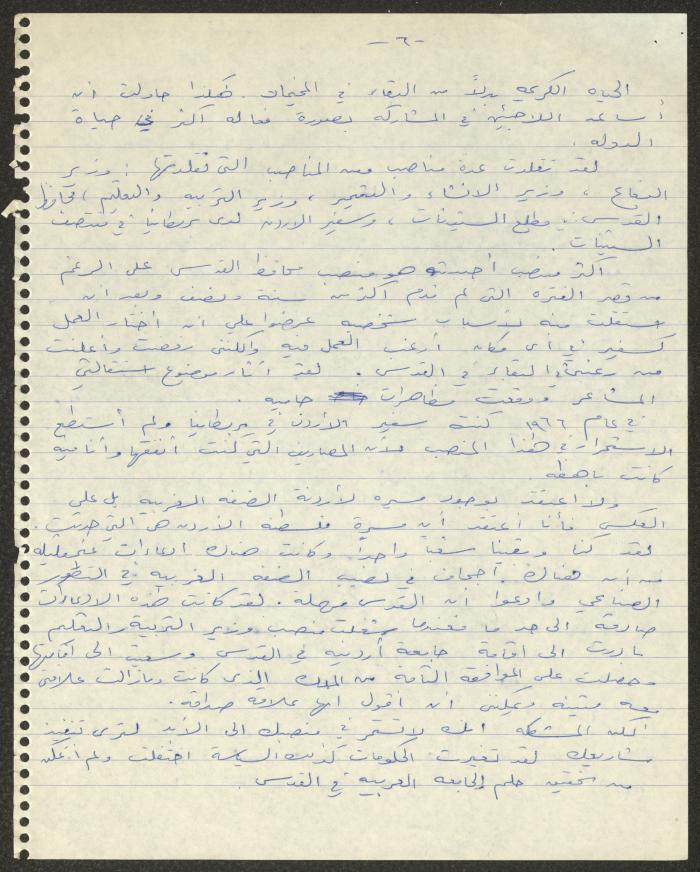 -٦-
الحياه الكريمه بدلاً من البقاء في المخيمات. هكذا حاولت ان
أساعد اللاجئين في المشاركه بصورة فعاله اكثر في حياة
الدوله.
لقد تقلدت عدة مناصب ومن المناصب التي تقلدتها: وزير
الدفاع، وزير الانشاء والتعمير، وزير التربيه والتعليم، محافظ
القدس في مطلع الستينات، وسفير الاردن لدى بريطانيا في منتصف
الستينات.
اكثر منصب أحببته هو منصب محافظ القدس على الرغم
من قصر الفتره التي لم تدم اكثر من سنة ونصف وبعد ان
استقلت منه لأسباب شخصيه عرضوا علي ان أختار العمل
كسفير في أي مكان أرغب العمل فيه ولكنني رفضت وأعلنت
عن رغبتي في البقاء في القدس. لقد أثار موضوع استقالتي
المشاعر ووقعت مظاهرات حاميه.
في عام ١٩٦٦ كنت سفير الأردن في بريطانيا ولم أستطع
الاستمرار في هذا المنصب لأن المصاريف التي كنت أنفقها وأنا فيه
كانت باهظه.
ولا اعتقد بوجود مسيره لأردنة الضفه الغربيه بل على
العكس فأنا أعتقد أن مسيرة فلسطنة الأردن هي التي حدثت.
لقد كنا وبقينا شعباً واحداً وكانت هناك ادعاءات غير قليله
من أن هناك أجحاف في نصيب الضفه الغربيه في التطور
الصناعي وادعوا ان القدس مهملة. لقد كانت هذه الادعاءات
صادقة الى حد ما فعندما شغلت منصب وزير التربية والتعليم
بادرت الى اقامة جامعة أردنيه في القدس وسعيت الى اقامتها
وحصلت على الموافقة التامة من الملك الذي كانت ومازالت علاقتي
معه متينه ويمكنني ان اقول انها علاقة صداقه.
لكن المشكله انك لا تستمر في منصبك الى الأبد لترى تنفيذ
مشاريعك لقد تغيرت الحكومات كذلك السياسة اختلفت ولم أتمكن
من تحقيق حلم الجامعه العربيه في القدس.